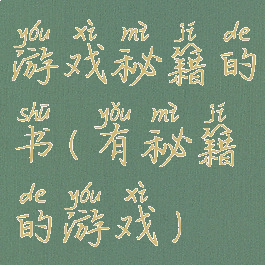 yóu xì mì jí de
游戏秘籍的
shū yǒu mì jí
书(有秘籍
de yóu xì
的游戏)